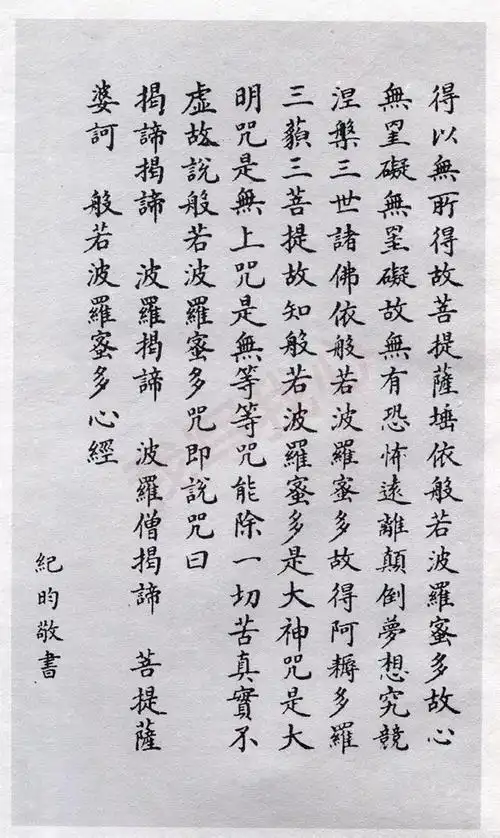 得以無所得故菩提薩埵依般若波羅蜜多故心
無罣礙無罣礙故無有恐怖遠離顛倒夢想究竟
涅槃三世諸佛依般若波羅蜜多故得阿耨多羅
三藐三菩提故知般若波羅蜜多是大神咒是大
明咒是無上咒是無等等咒能除一切苦真實不
虛故說般若波羅蜜多咒即說咒曰
揭諦揭諦　波羅揭諦　波羅僧揭諦　菩提薩
婆訶　般若波羅蜜多心經
紀昀敬書